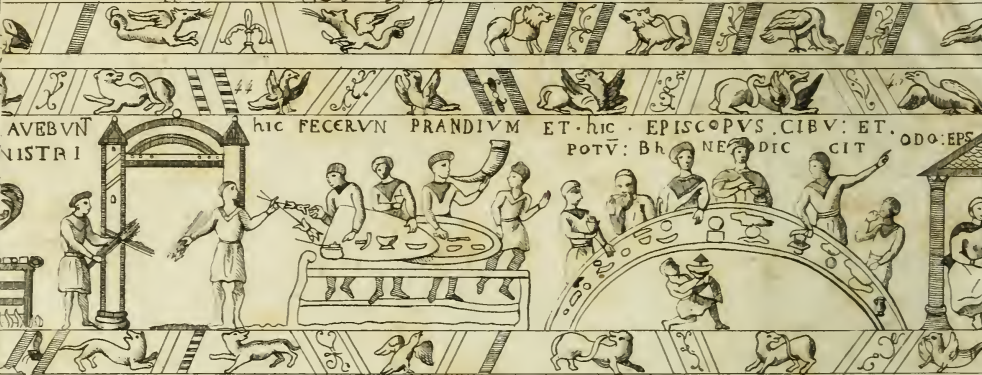 AVEBVNT hIC FECERVN PRANDIVM ET · hic · EPISCOPVS . CIBV : ET .
NISTRI POTV̄ : Bh NE DIC CIT ODO : EPS
44